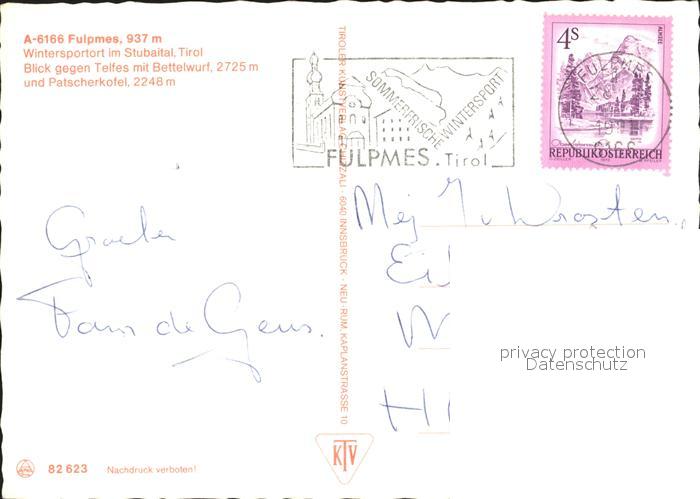 A-6166 Fulpmes, 937 m
Wintersportort im Stubaital, Tirol
Blick gegen Telfes mit Bettelwurf, 2725 m
und Patscherkofel, 2248 m
SOMMERFRISCHE
WINTERSPORT
FULPMES. Tirol
4S
ALMSEE
REPUBLIK ÖSTERREICH
6166
TIROLER KUNSTVERLAG CHIZZALI · 6040 INNSBRUCK · NEU-RUM, KAPLANSTRASSE 10
Groeten
Fam de Geus.
Mej
privacy protection
Datenschutz
KTV
82 623 Nachdruck verboten!